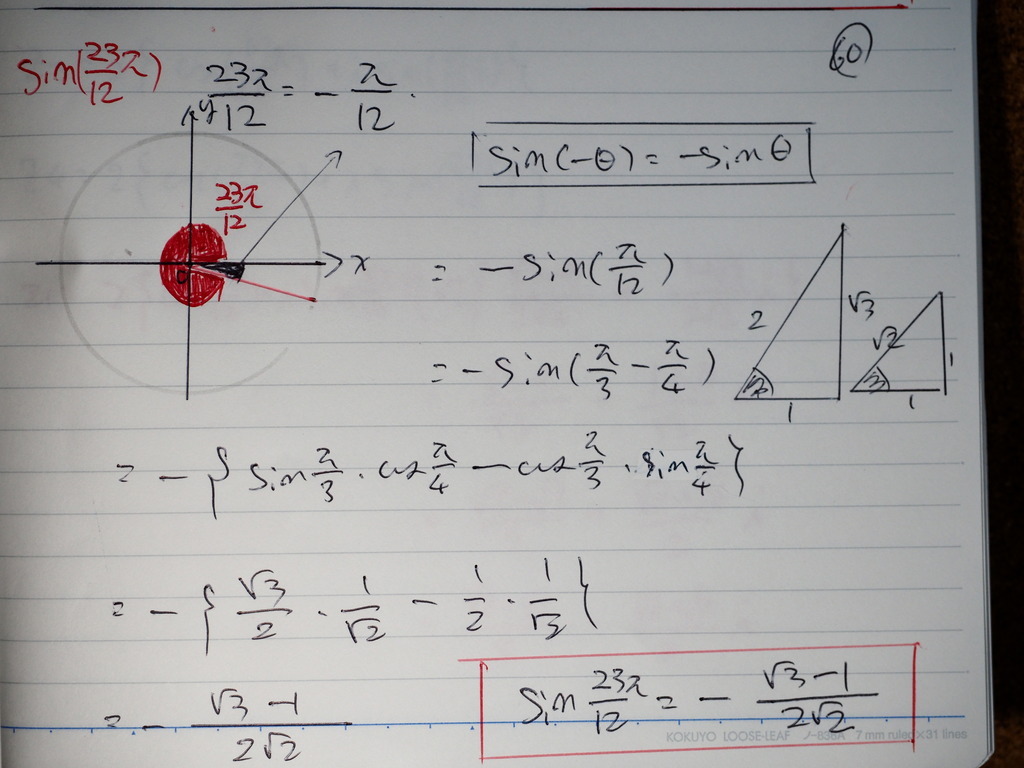 60
sin(23π/12)
23π/12 = -π/12.
y
sin(-θ) = -sinθ
23π/12
0
x
= -sin(π/12)
2 √3 √2 1
= -sin(π/3 - π/4)
1 1
= -{sin π/3 · cos π/4 - cos π/3 · sin π/4}
= -{√3/2 · 1/√2 - 1/2 · 1/√2}
= - (√3 - 1)/(2√2)
sin 23π/12 = - (√3 - 1)/(2√2)
KOKUYO LOOSE-LEAF ノ-836A 7 mm ruled×31 lines